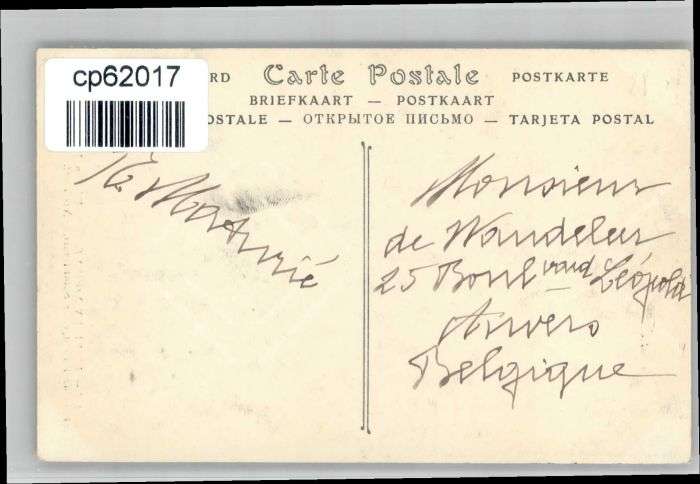 cp62017
RD Carte Postale POSTKARTE
BRIEFKAART — POSTKAART
OSTALE — ОТКРЫТОЕ ПИСЬМО — TARJETA POSTAL
Monsieur
de Wandeleur
25 Boulvard Léopold
Anvers
Belgique